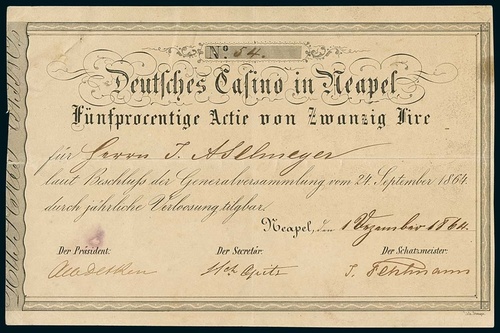 No. 54.
Deutsches Casino in Neapel
Fünfprocentige Actie von Zwanzig Lire
für Herrn J. Aselmeyer
laut Beschluß der Generalversammlung vom 24. September 1864.
durch jährliche Verloosung tilgbar.
Neapel, den 1 Dezember 1864.
Der Präsident: Der Secretär: Der Schatzmeister: